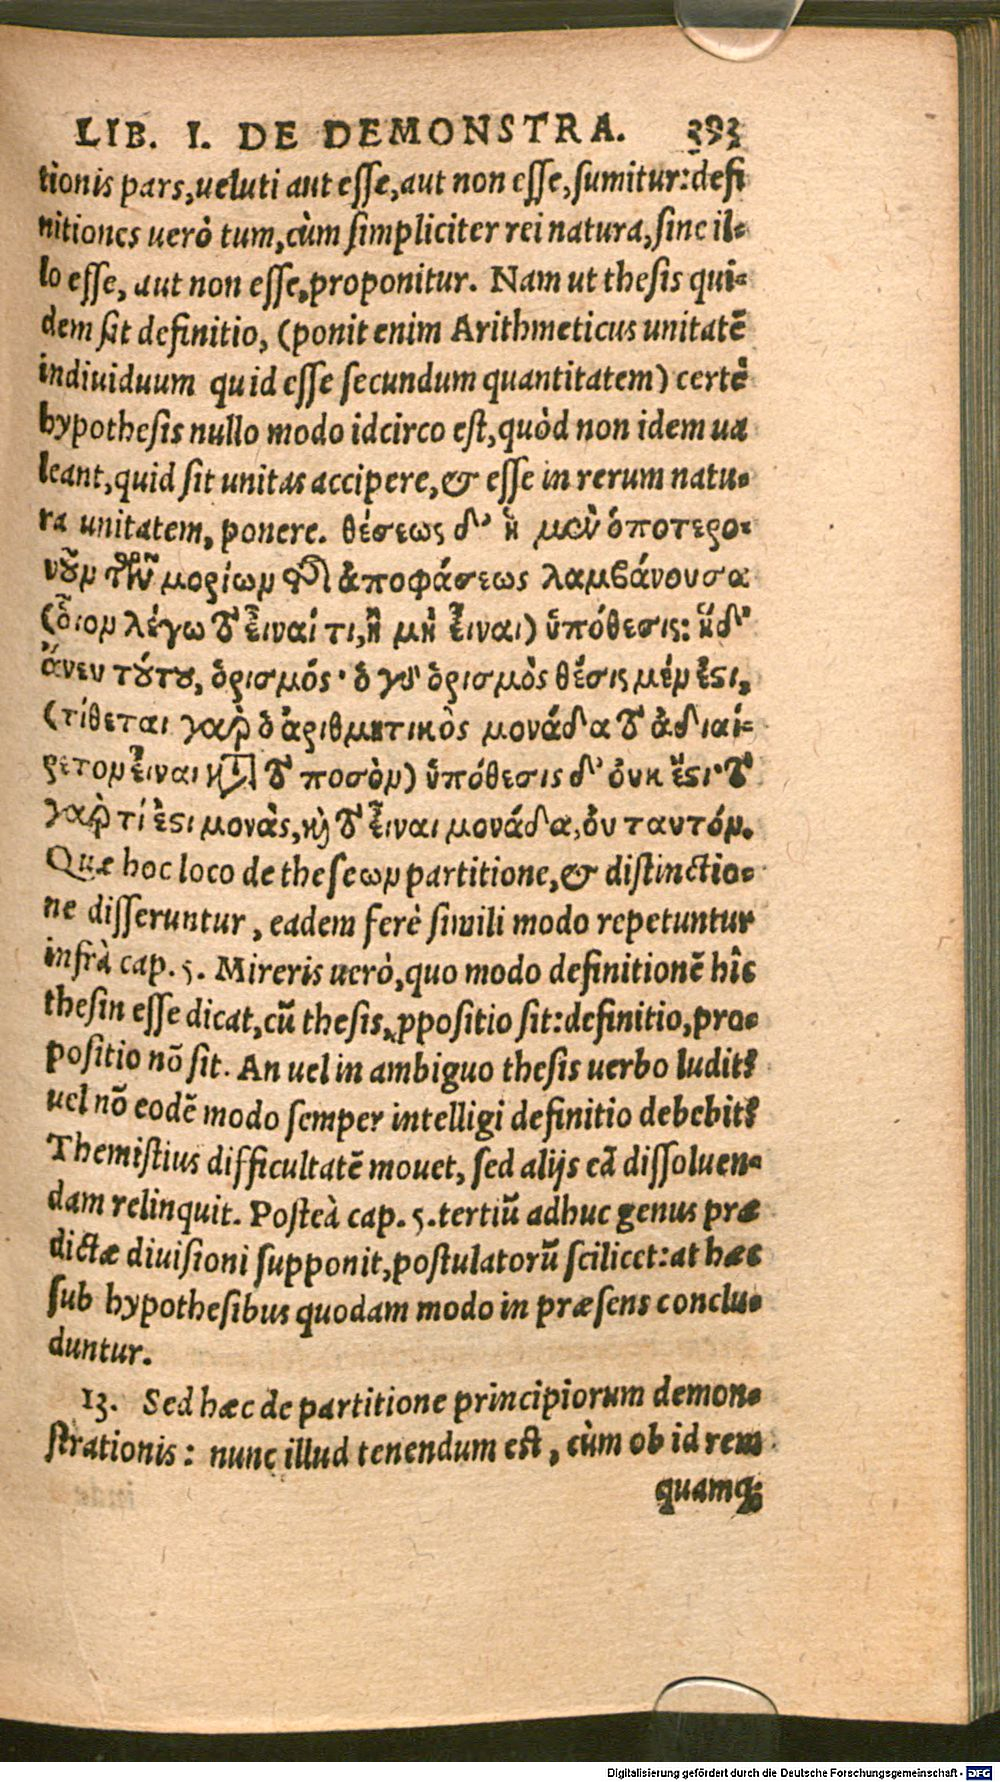 LIB. I. DE DEMONSTRA. 393
tionis pars, ueluti aut esse, aut non esse, sumitur: defi
nitiones uerò tum, cùm simpliciter rei natura, sine il-
lo esse, aut non esse, proponitur. Nam ut thesis qui-
dem sit definitio, (ponit enim Arithmeticus unitatē
indiuiduum quid esse secundum quantitatem) certè
hypothesis nullo modo idcirco est, quòd non idem ua
leant, quid sit unitas accipere, & esse in rerum natu-
ra unitatem, ponere. θέσεως δ' ἡ μὲν ὁποτερο-
νοῦν τῶν μορίων τῆς ἀποφάσεως λαμβάνουσα
(οἷον λέγω τὸ εἶναί τι, ἢ μὴ εἶναι) ὑπόθεσις: ἡ δ'
ἄνευ τούτου, ὁρισμός· ὁ γὰρ ὁρισμὸς θέσις μέν ἐστι,
(τίθεται γὰρ ὁ ἀριθμητικὸς μονάδα τὸ ἀδιαί-
ρετον εἶναι κατὰ τὸ ποσὸν) ὑπόθεσις δ' οὐκ ἔστι· τὸ
γὰρ τί ἐστι μονὰς, καὶ τὸ εἶναι μονάδα, οὐ ταυτόν.
Quæ hoc loco de theseων partitione, & distinctio-
ne disseruntur, eadem ferè simili modo repetuntur
infrà cap. 5. Mireris uerò, quo modo definitionē hîc
thesin esse dicat, cū thesis, ꝓpositio sit: definitio, pro-
positio nō sit. An uel in ambiguo thesis uerbo ludit?
uel nō eodē modo semper intelligi definitio debebit?
Themistius difficultatē mouet, sed alijs eā dissoluen-
dam relinquit. Posteà cap. 5. tertiū adhuc genus præ
dictæ diuisioni supponit, postulatorū scilicet: at hæc
sub hypothesibus quodam modo in præsens conclu-
duntur.
13. Sed hæc de partitione principiorum demon-
strationis: nunc illud tenendum est, cùm ob id rem
quamq;
Digitalisierung gefördert durch die Deutsche Forschungsgemeinschaft - DFG